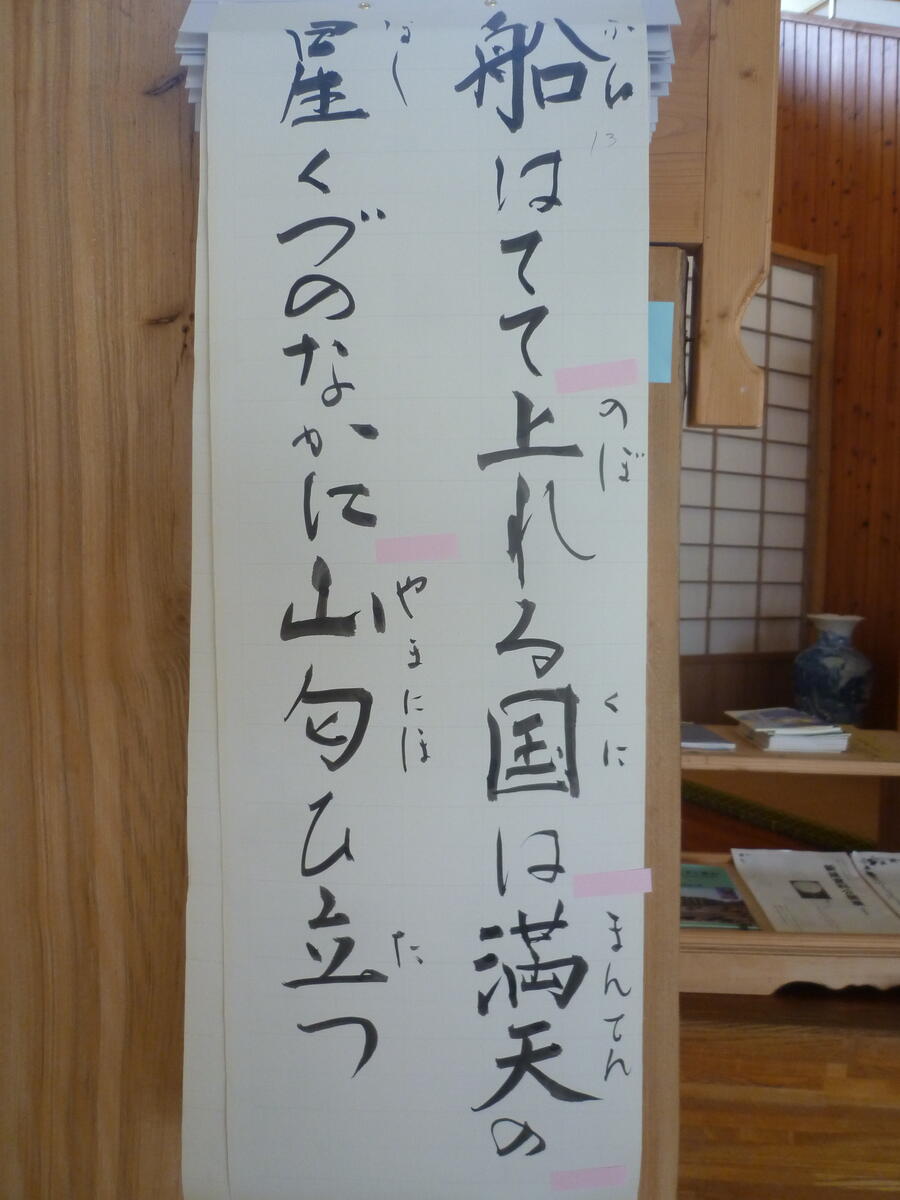 船はてて上れる国は満天の
ふね
13
のぼ
くに
まんてん
星くづのなかに山匂ひ立つ
ほし
やまにほ
た